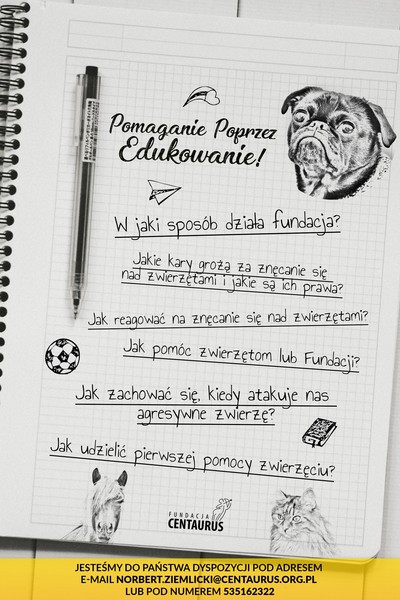 Pomaganie Poprzez
Edukowanie!
W jaki sposób działa fundacja?
Jakie kary grożą za znęcanie się
nad zwierzętami i jakie są ich prawa?
Jak reagować na znęcanie się nad zwierzętami?
Jak pomóc zwierzętom lub Fundacji?
Jak zachować się, kiedy atakuje nas
agresywne zwierzę?
Jak udzielić pierwszej pomocy zwierzęciu?
FUNDACJA
CENTAURUS
JESTEŚMY DO PAŃSTWA DYSPOZYCJI POD ADRESEM
E-MAIL NORBERT.ZIEMLICKI@CENTAURUS.ORG.PL
LUB POD NUMEREM 535162322